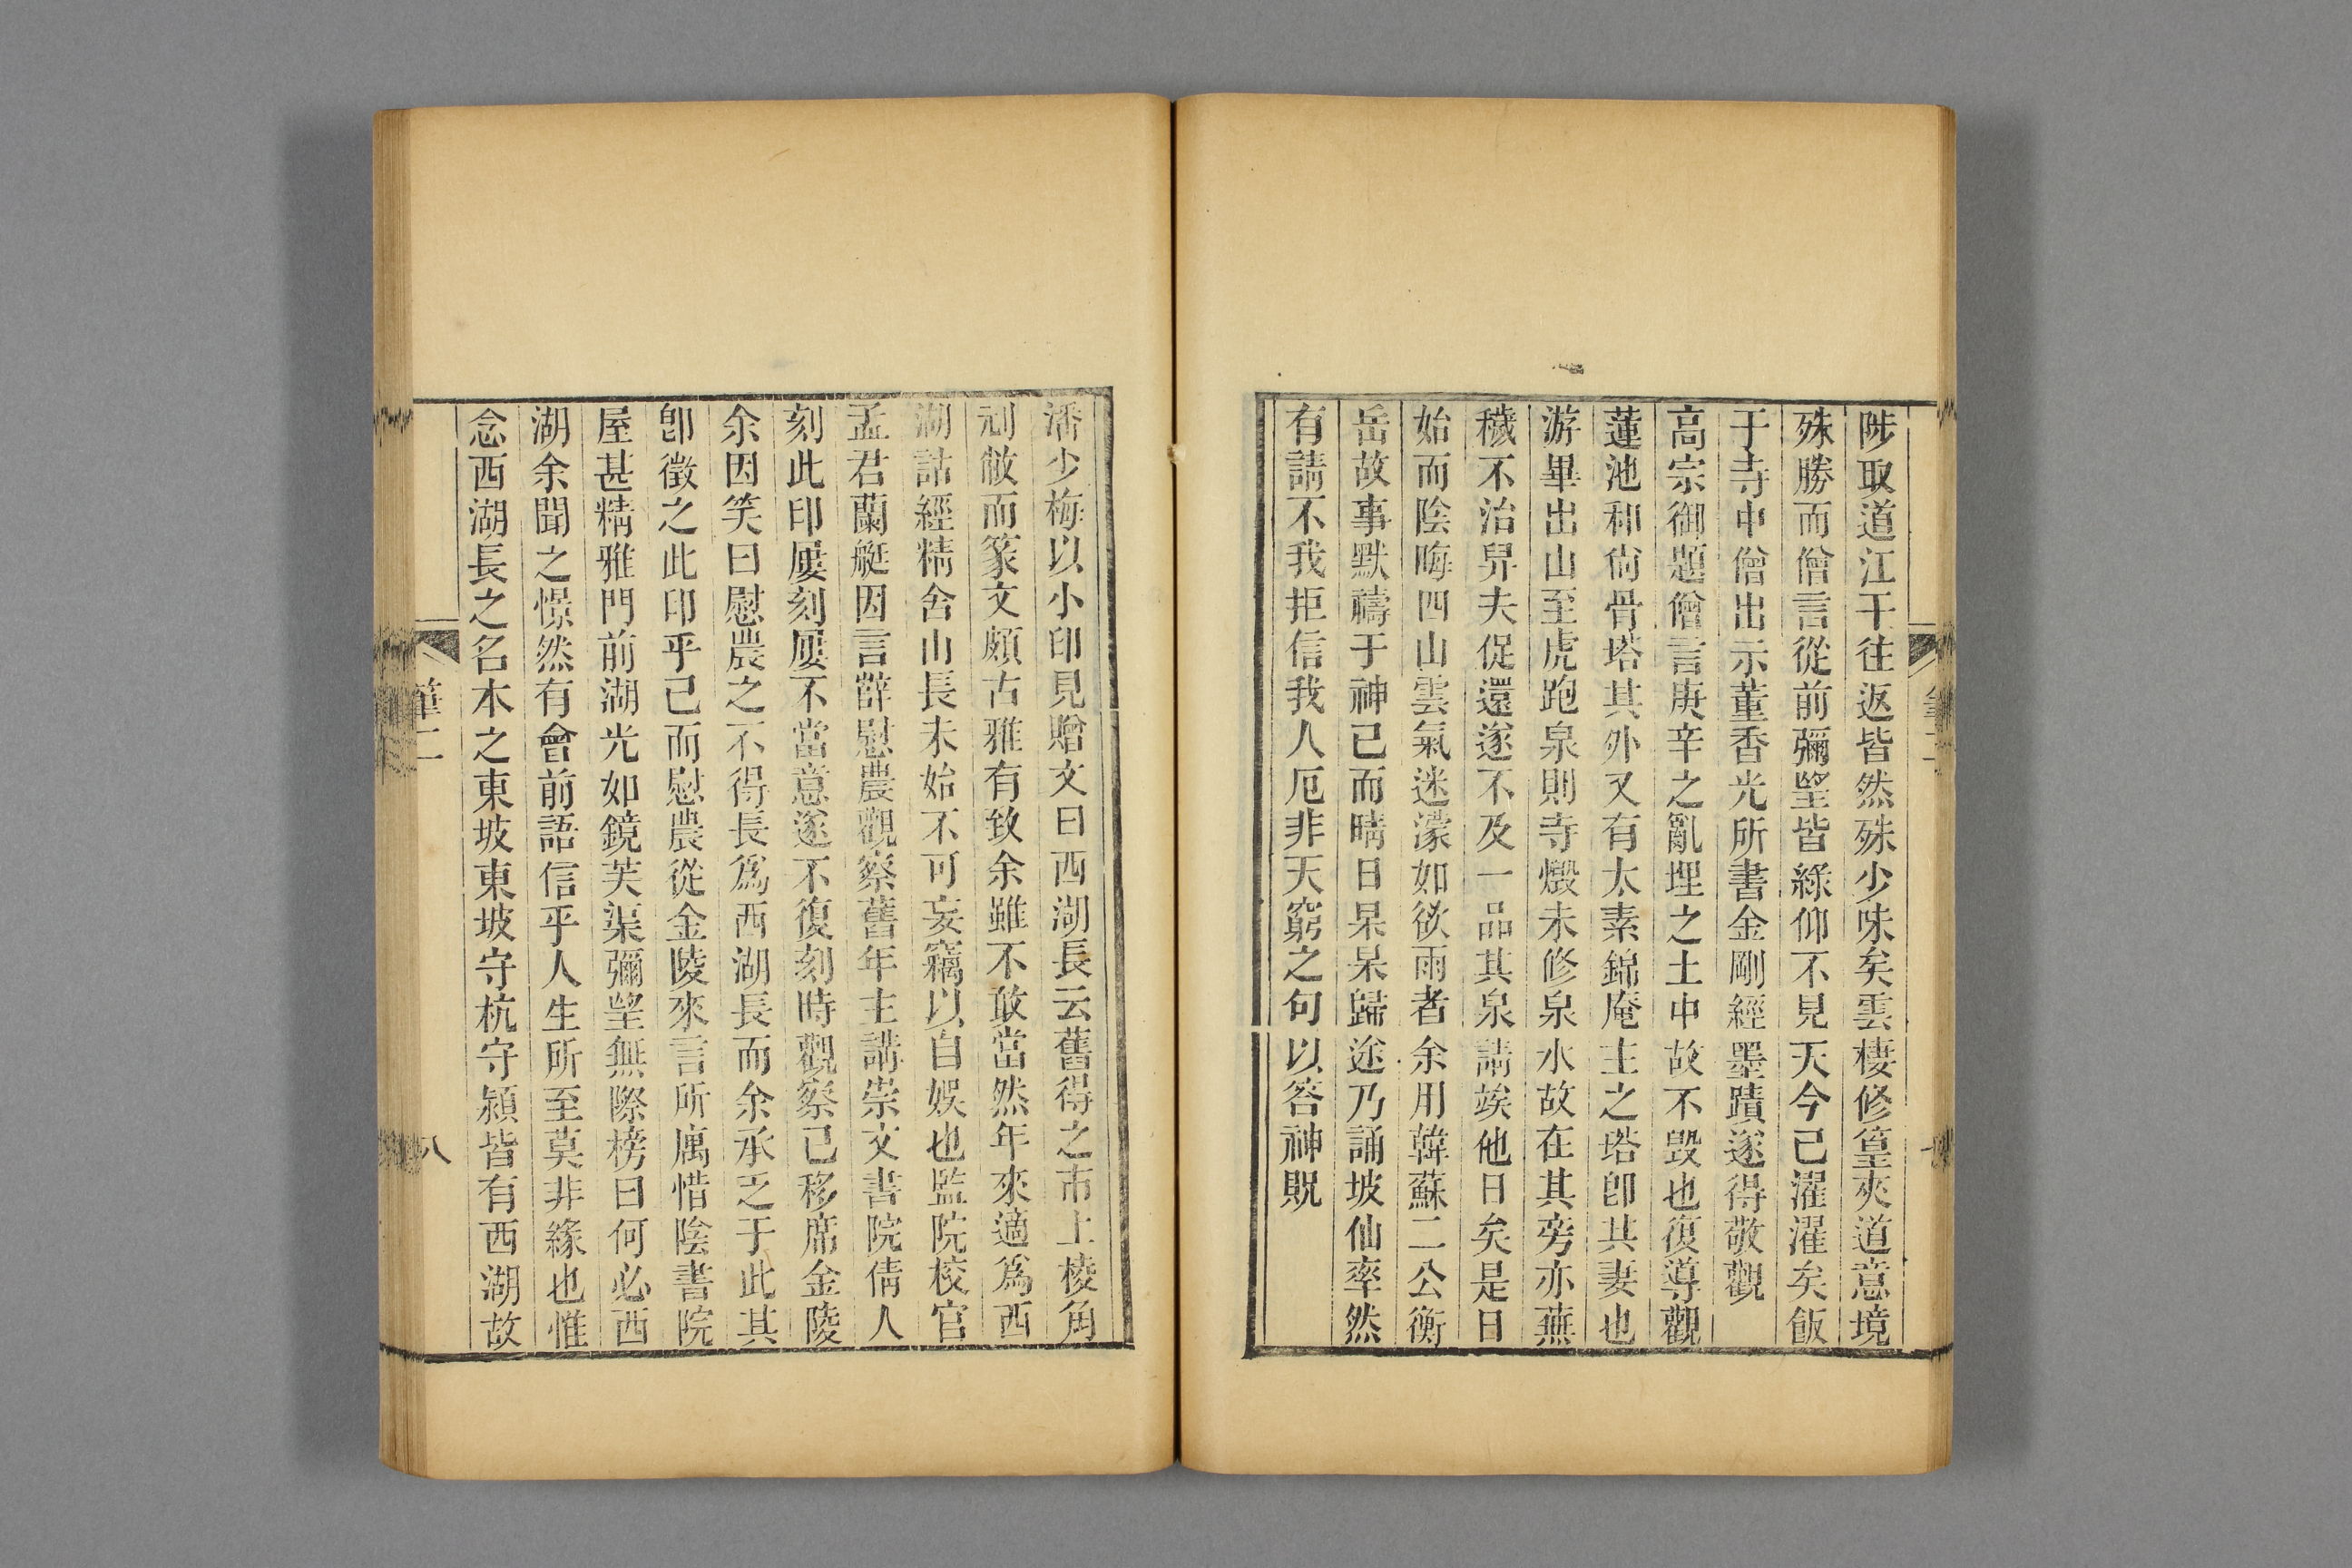 陟取道江干往返皆然殊少味矣雲棲修篁夾道意境
殊勝而僧言從前彌望皆綠仰不見天今已濯濯矣飯
于寺中僧出示董香光所書金剛經墨蹟遂得敬觀
高宗御題僧言庚辛之亂埋之土中故不毀也復導觀
蓮池和尙骨塔其外又有太素錦庵主之塔卽其妻也
游畢出山至虎跑泉則寺燬未修泉水故在其旁亦蕪
穢不治舁夫促還遂不及一品其泉請竢他日矣是日
始而陰晦四山雲氣迷濛如欲雨者余用韓蘇二公衡
岳故事默禱于神已而晴日杲杲歸途乃誦坡仙率然
有請不我拒信我人厄非天窮之句以答神貺
潘少梅以小印見贈文曰西湖長云舊得之市上棱角
刓敝而篆文頗古雅有致余雖不敢當然年來適爲西
湖詁經精舍山長未始不可妄竊以自娛也監院校官
孟君蘭艇因言薛慰農觀察舊年主講崇文書院倩人
刻此印屢刻屢不當意遂不復刻時觀察已移席金陵
余因笑曰慰農之不得長爲西湖長而余承乏于此其
卽徵之此印乎已而慰農從金陵來言所寓惜陰書院
屋甚精雅門前湖光如鏡芙渠彌望無際榜曰何必西
湖余聞之憬然有會前語信乎人生所至莫非緣也惟
念西湖長之名本之東坡東坡守杭守潁皆有西湖故
筆二
八